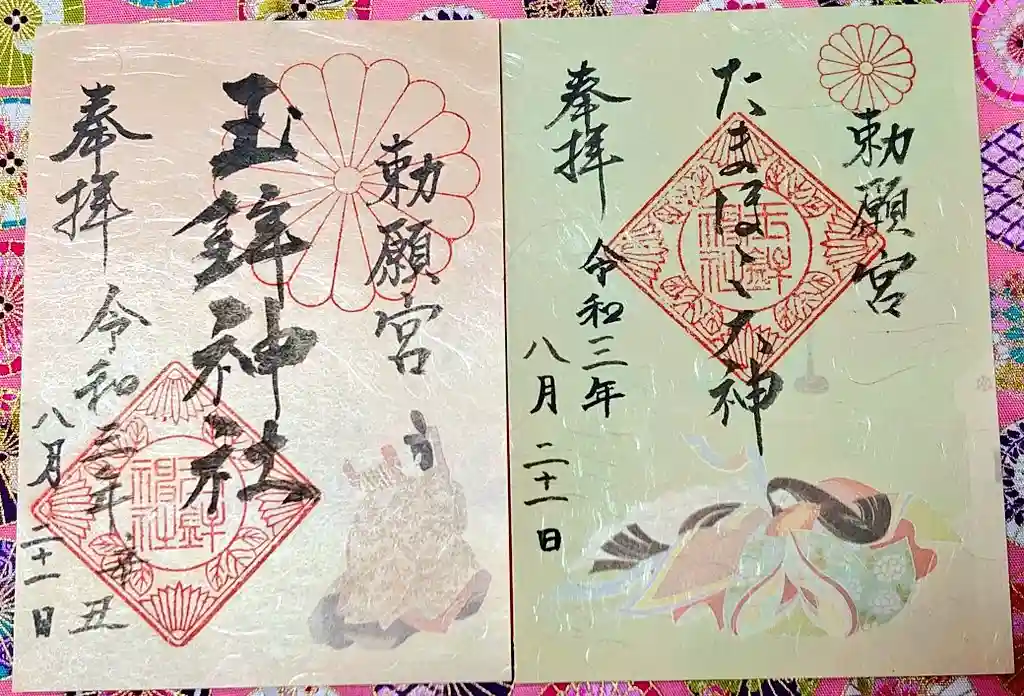 勅願宮
たまほこ大神
奉拝
令和三年
八月二十一日
勅願宮
玉鉾神社
奉拝
令和三年辛丑
八月二十一日